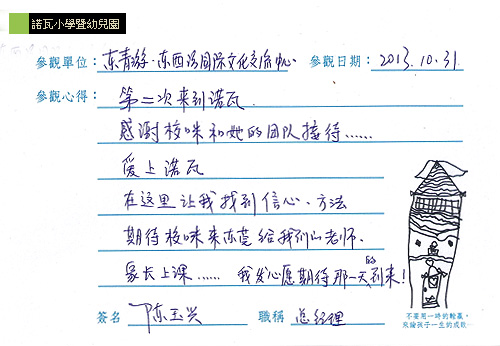 諾瓦小學暨幼兒園
參觀單位：东青游·东西洛国际文化交流中心. 參觀日期：2013.10.31
參觀心得：第二次来到诺瓦.
感谢校咪和她的团队接待……
爱上诺瓦
在这里让我找到信心、方法
期待校咪来东莞给我们的老师.
家长上课…… 我发心愿期待那一天的到来！
簽名 陈玉兴 職稱 总经理
不要用一時的輸贏，
來論孩子一生的成敗